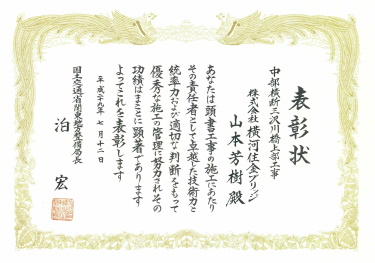 表彰状
中部横断三沢川橋上部工事
株式会社横河住金ブリッジ
山本芳樹殿
あなたは頭書工事の施工にあたり
その責任者として卓越した技術力と
統率力および適切な判断をもって
優秀な施工の管理に努力されその
功績はまことに顕著であります
よってこれを表彰します
平成二十九年七月十二日
国土交通省関東地方整備局長
泊宏